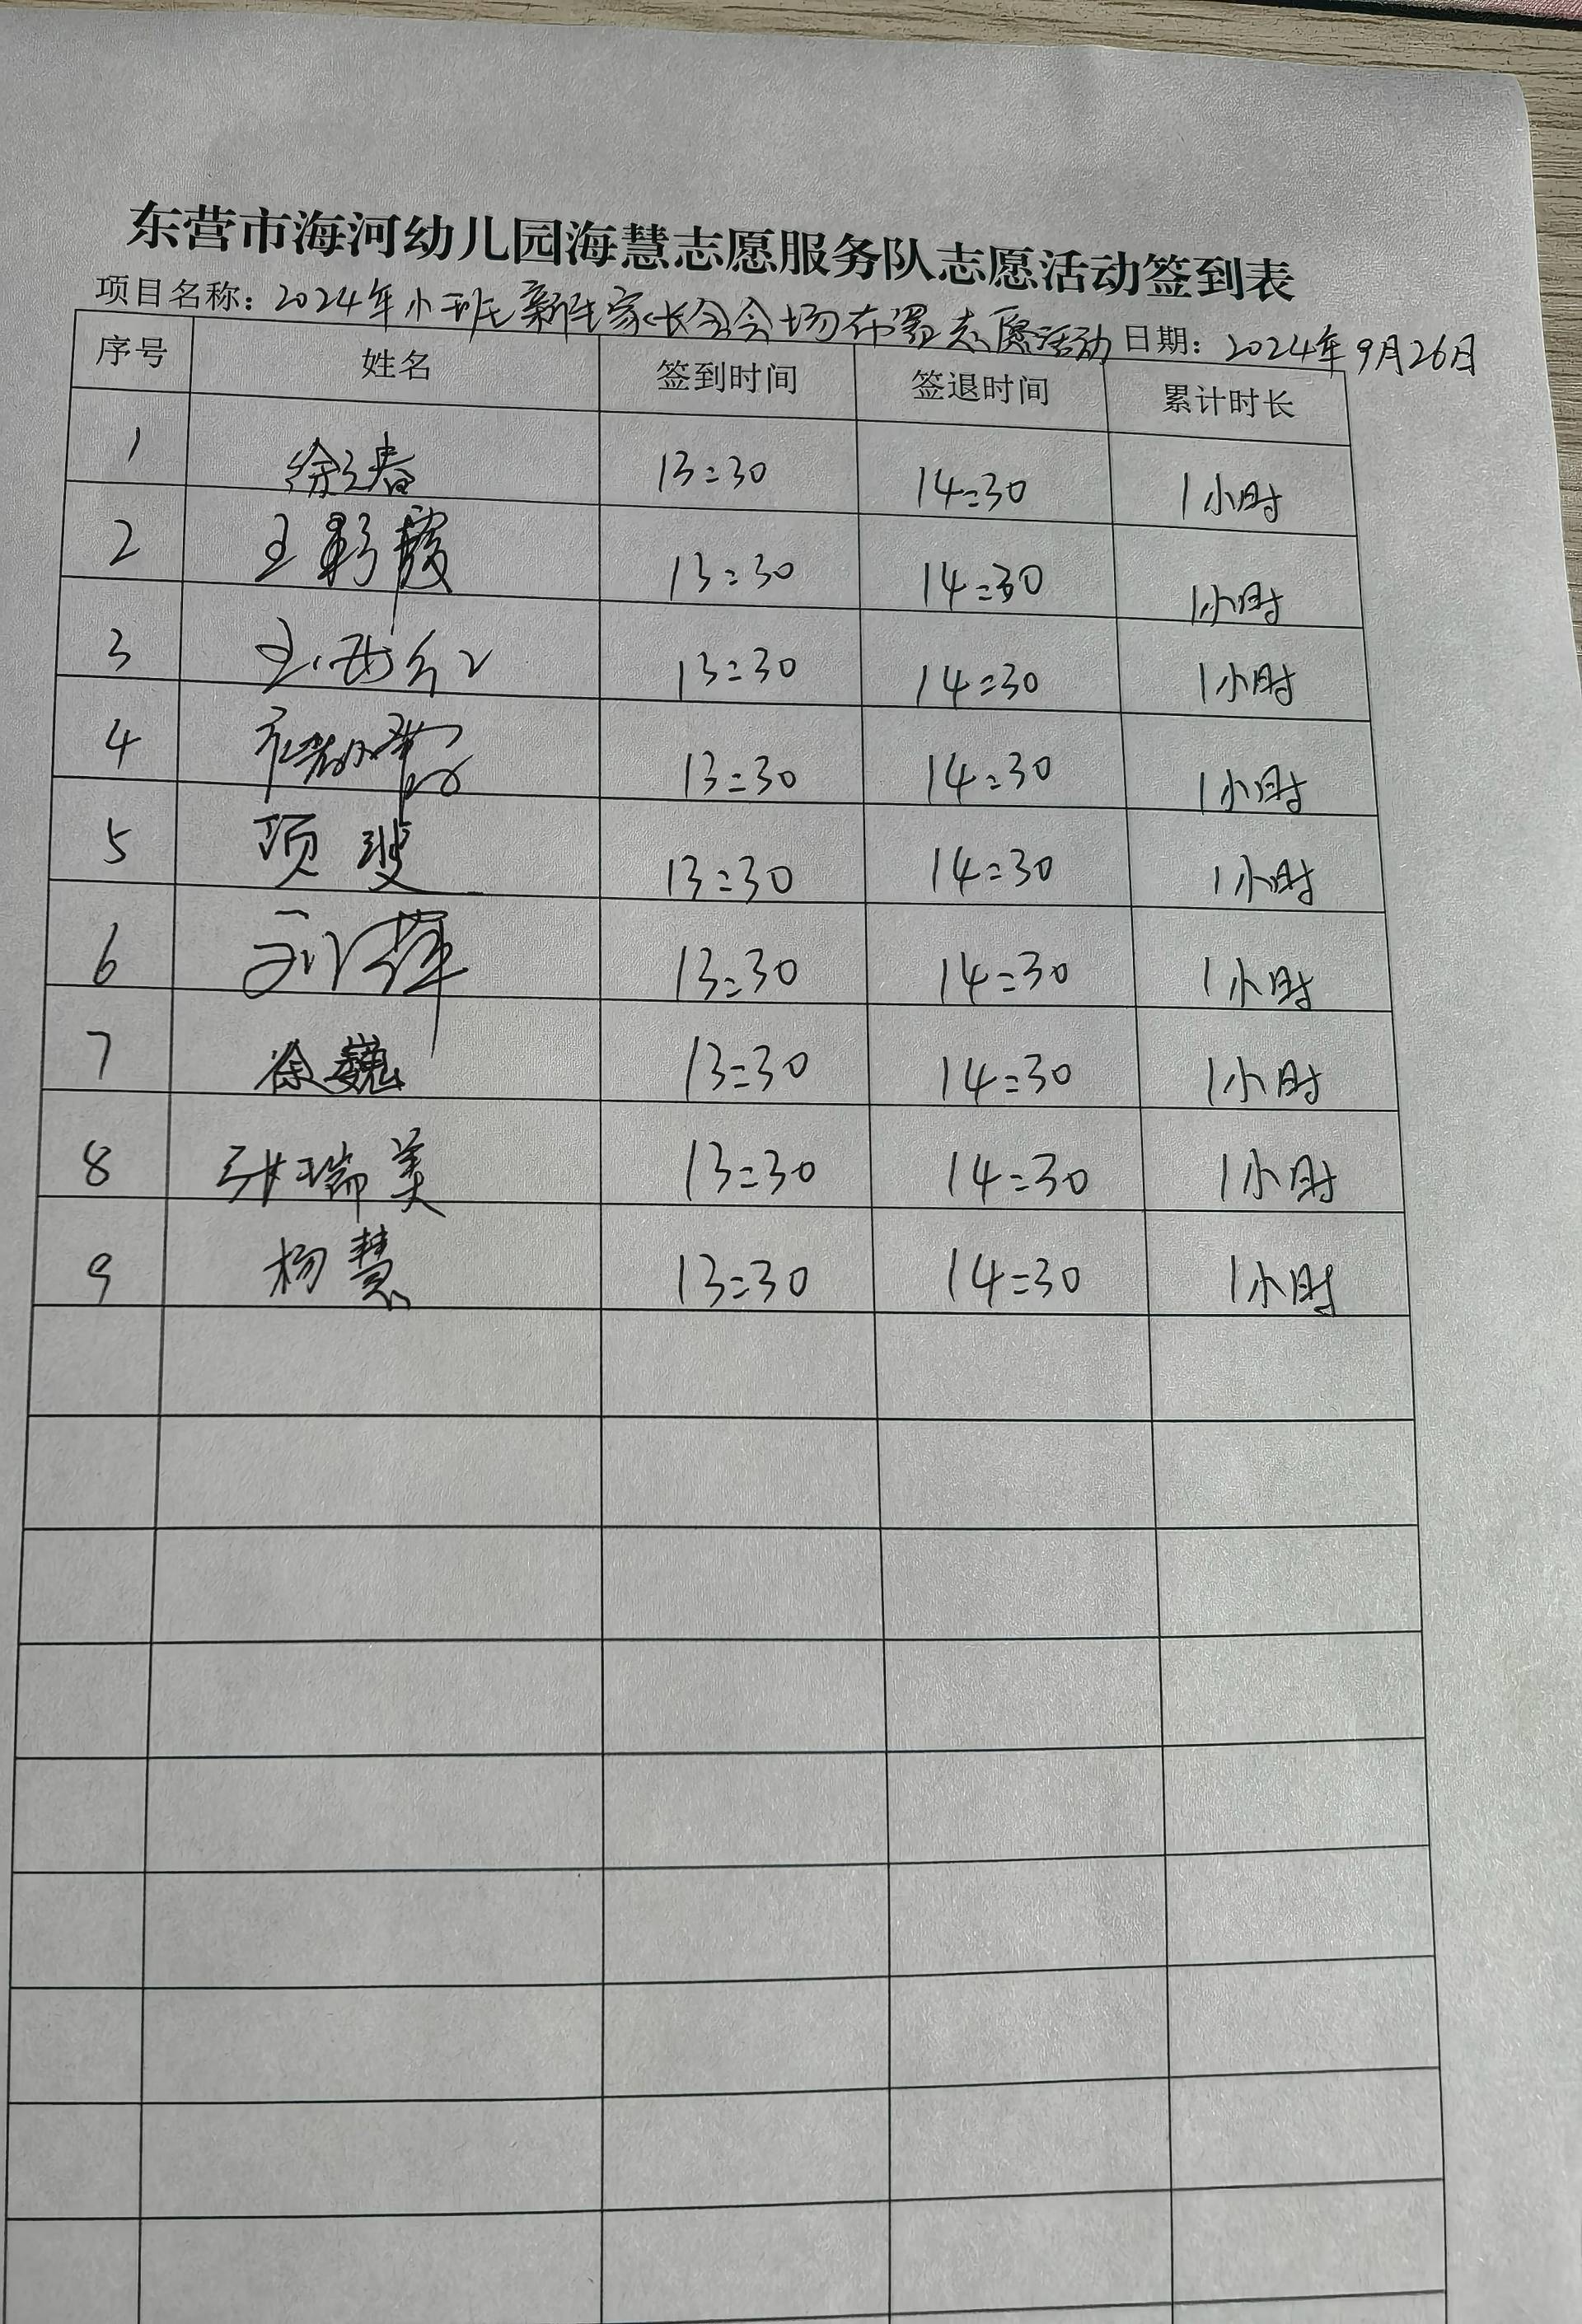 东营市海河幼儿园海慧志愿服务队志愿活动签到表
项目名称：2024年小班新生家长会会场布置志愿活动 日期：2024年9月26日
序号 姓名 签到时间 签退时间 累计时长
1 13:30 14:30 1小时
2 王彩霞 13:30 14:30 1小时
3 13:30 14:30 1小时
4 13:30 14:30 1小时
5 项斐 13:30 14:30 1小时
6 13:30 14:30 1小时
7 徐巍 13:30 14:30 1小时
8 张瑞美 13:30 14:30 1小时
9 杨慧 13:30 14:30 1小时